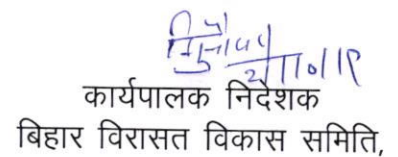 कार्यपालक निदेशक
बिहार विरासत विकास समिति,